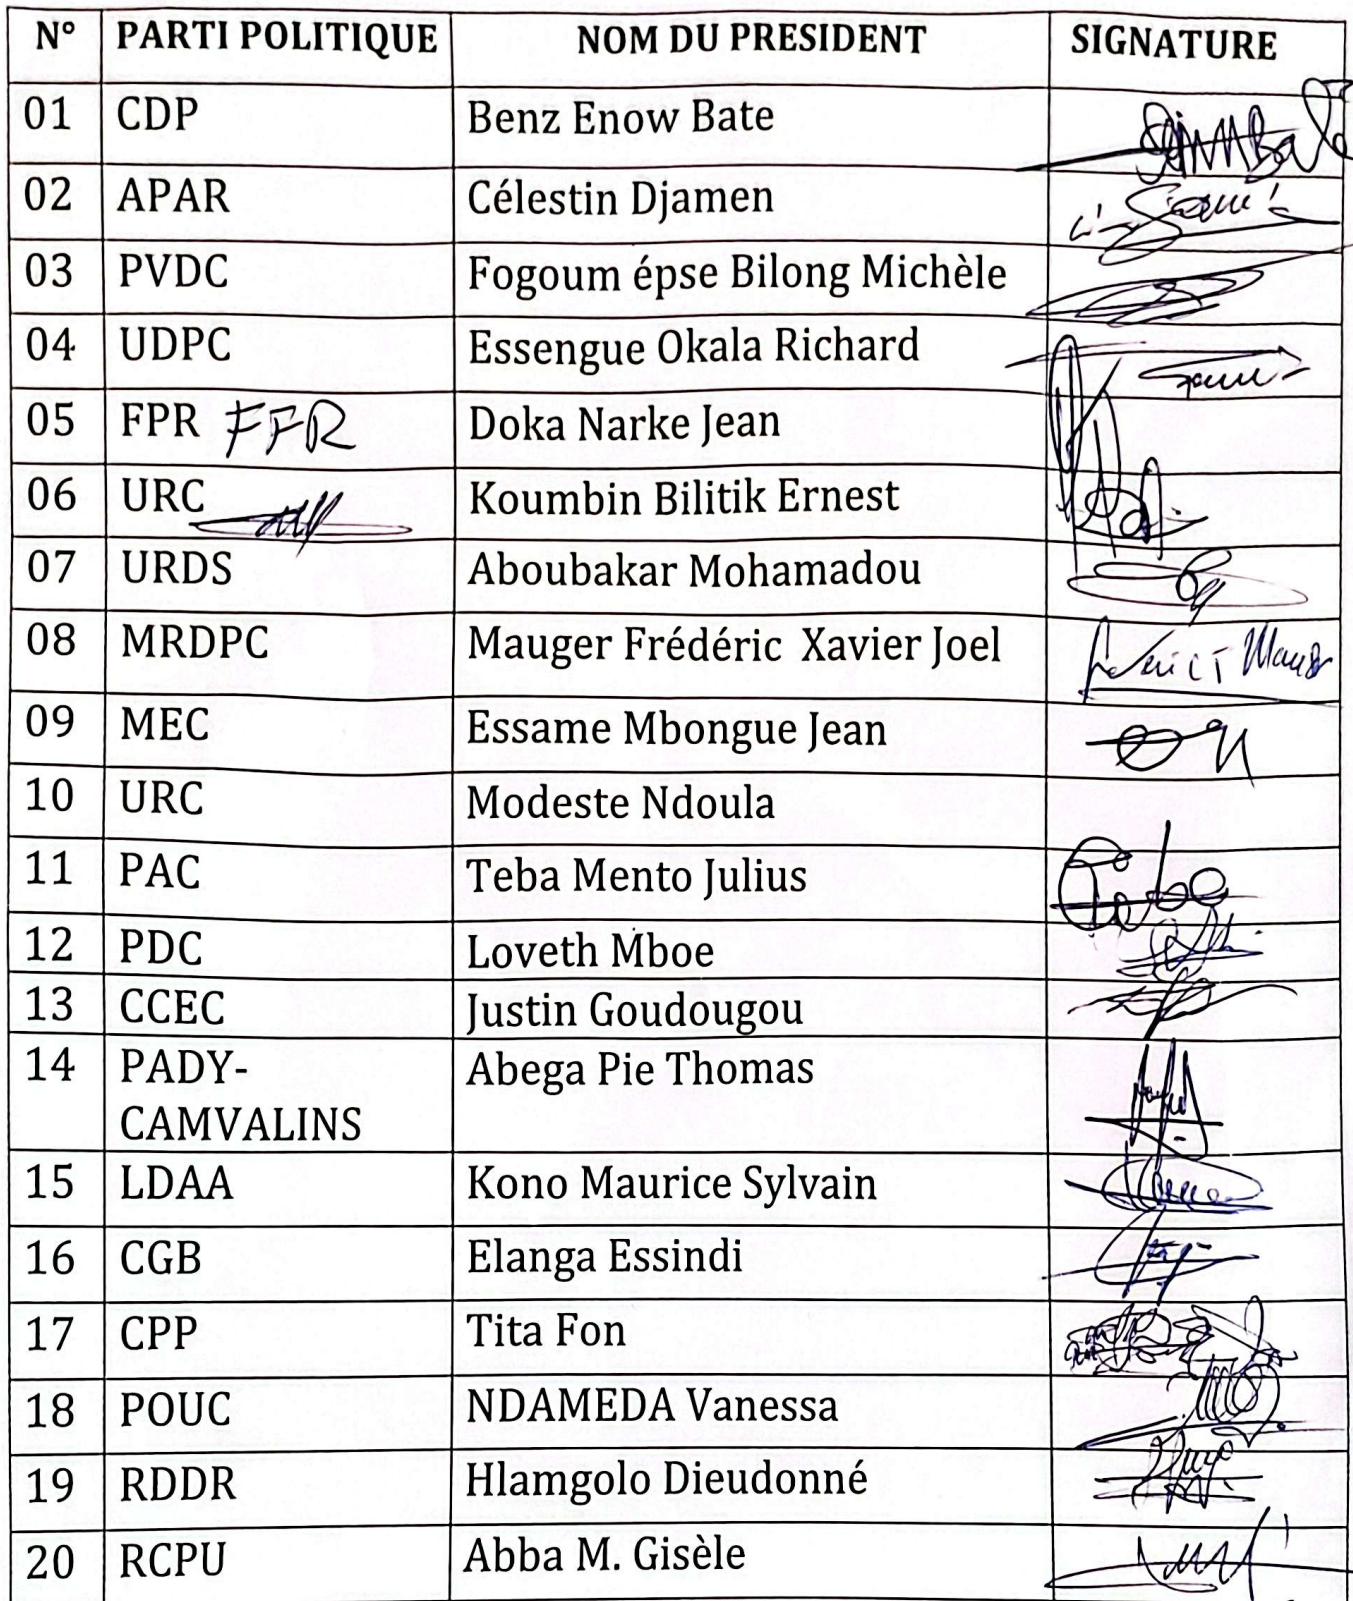 N° PARTI POLITIQUE NOM DU PRESIDENT SIGNATURE
01 CDP Benz Enow Bate
02 APAR Célestin Djamen
03 PVDC Fogoum épse Bilong Michèle
04 UDPC Essengue Okala Richard
05 FPR FFR Doka Narke Jean
06 URC Koumbin Bilitik Ernest
07 URDS Aboubakar Mohamadou
08 MRDPC Mauger Frédéric Xavier Joel
09 MEC Essame Mbongue Jean
10 URC Modeste Ndoula
11 PAC Teba Mento Julius
12 PDC Loveth Mboe
13 CCEC Justin Goudougou
14 PADY- Abega Pie Thomas
CAMVALINS
15 LDAA Kono Maurice Sylvain
16 CGB Elanga Essindi
17 CPP Tita Fon
18 POUC NDAMEDA Vanessa
19 RDDR Hlamgolo Dieudonné
20 RCPU Abba M. Gisèle